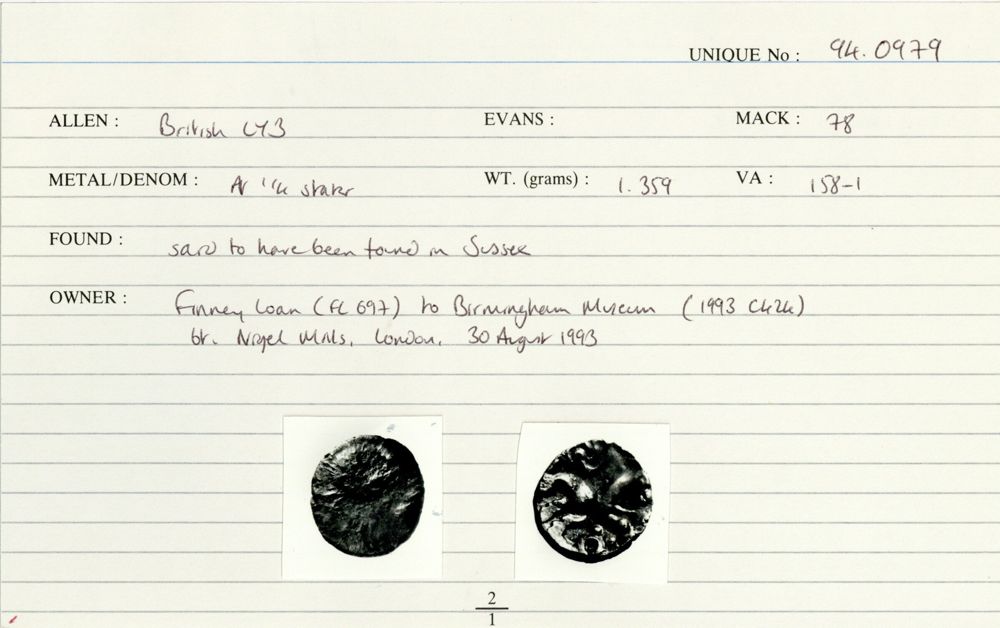 UNIQUE No : 94.0979
ALLEN : British LY3 EVANS : MACK : 78
METAL/DENOM : AV 1/4 stater WT. (grams) : 1.359 VA : 158-1
FOUND : said to have been found in Sussex
OWNER : Finney Loan (FL 697) to Birmingham Museum (1993
bt. Nigel Mills, London, 30 August 1993
2
1